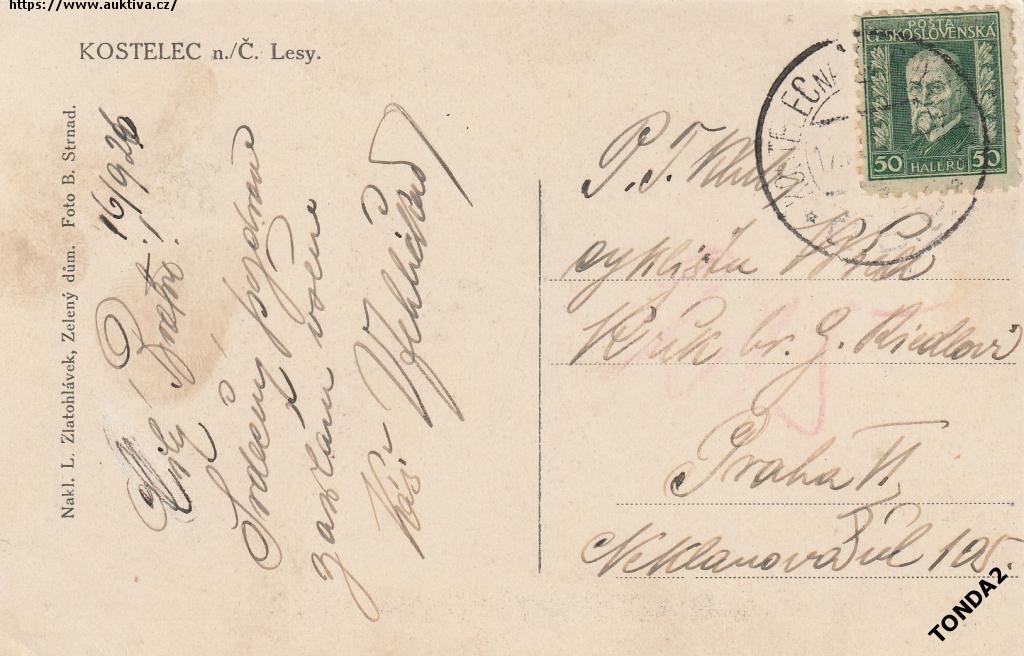 https://www.auktiva.cz/
KOSTELEC n./Č. Lesy.
Nakl. L. Zlatohlávek, Zelený dům. Foto B. Strnad.
16/9 26
Milý Bratře!
Srdečný pozdrav
zasílám
Váš
POŠTA
ČESKOSLOVENSKÁ
50 HALÉŘŮ 50
KOSTELEC NA
P. T. Klub
cyklistů
br. G. Riedlovi
Praha VI
Neklanova ul 125.
TONDA2